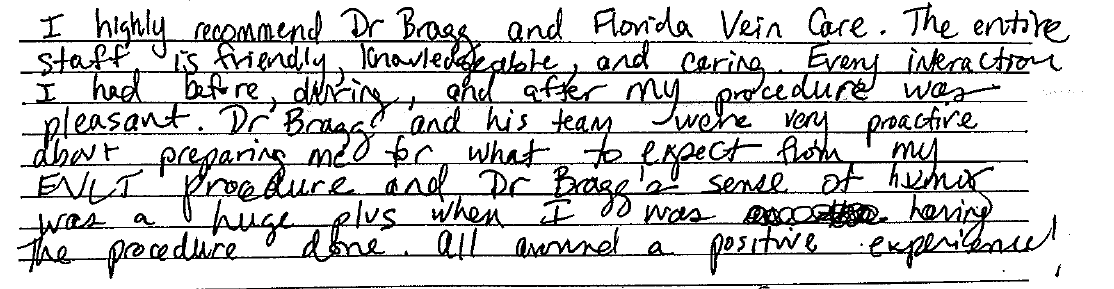 I highly recommend Dr Bragg and Florida Vein Care. The entire
staff is friendly, knowledgeable, and caring. Every interaction
I had before, during, and after my procedure was
pleasant. Dr Bragg and his team were very proactive
about preparing me for what to expect from my
EVLT procedure and Dr Bragg's sense of humor
was a huge plus when I was having
the procedure done. All around a positive experience!